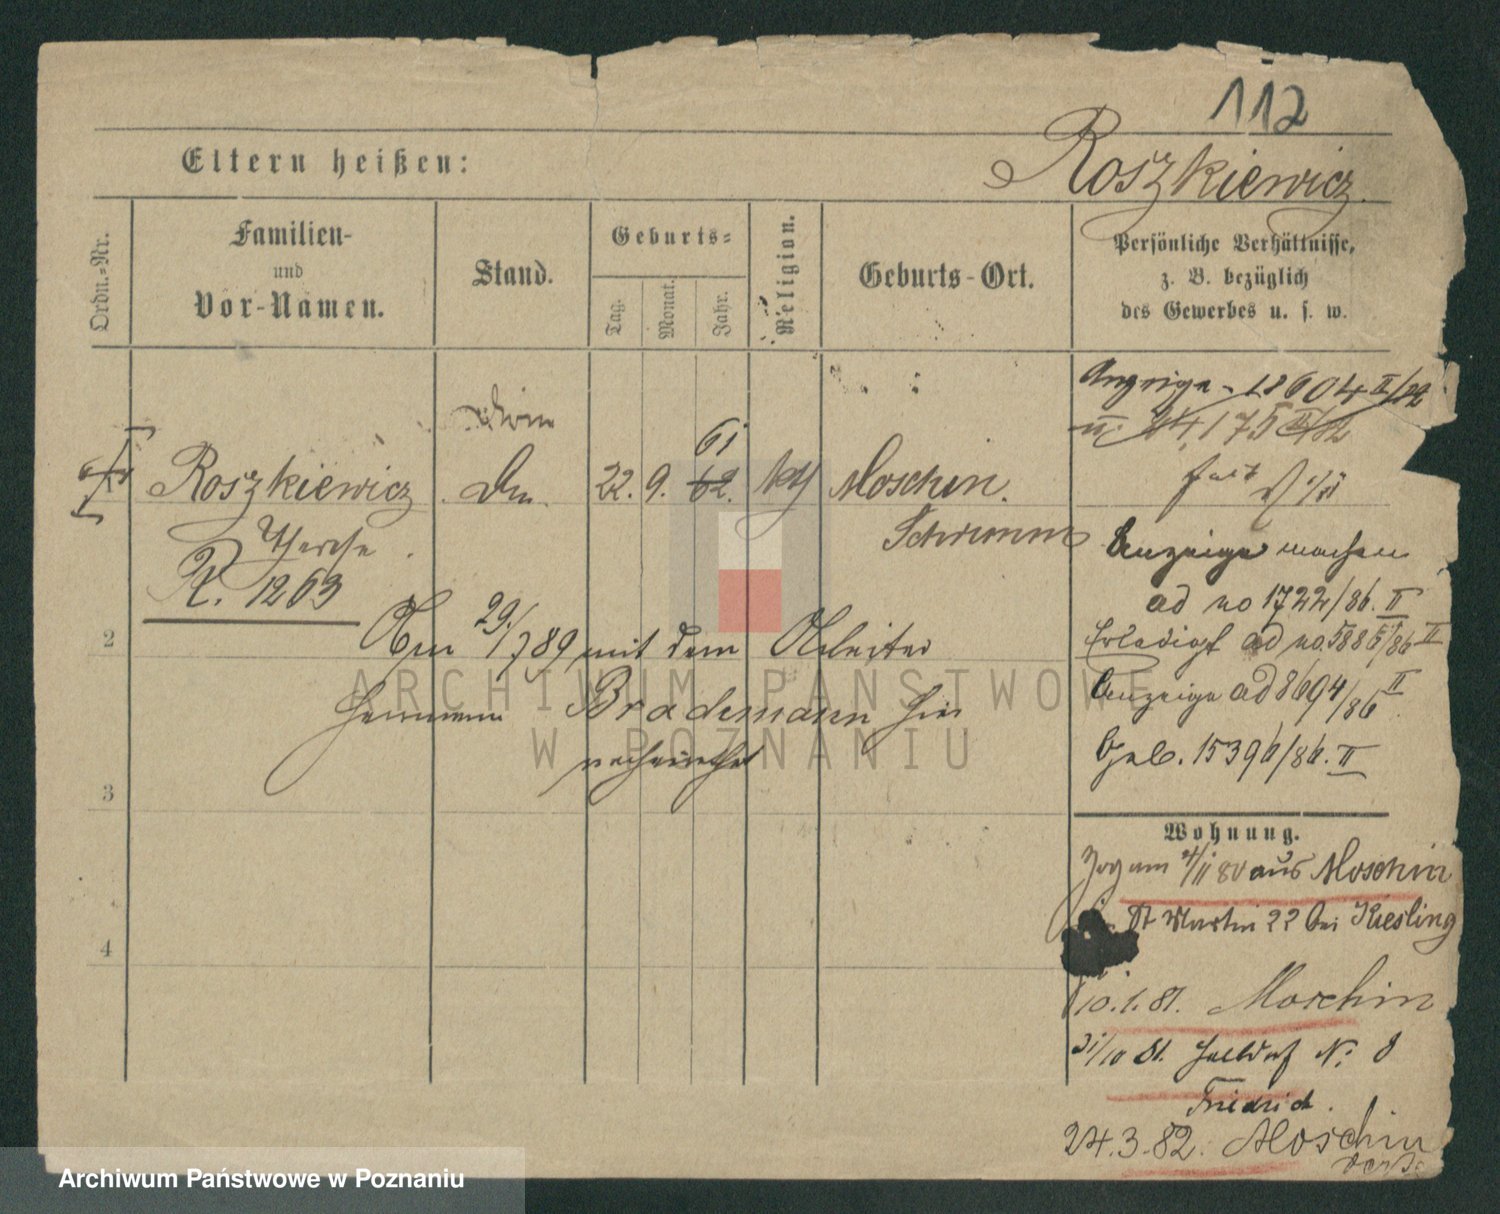 112
Eltern heißen:
Roszkiewicz.
Ordn.-Nr.
Familien-
und
Vor-Namen.
Stand.
Geburts-
Tag.
Monat.
Jahr.
Religion.
Geburts-Ort.
Persönliche Verhältnisse,
z. B. bezüglich
des Gewerbes u. s. w.
Anzeige 18604 II/82
u. 24,175
61
Roszkiewicz
22. 9. 62. kth Moschin.
Therese
Schrimm
R. 1263
Anzeige machen
ad no 1722/86. II
2
Am 29./7 89 mit dem Arbeiter
Erledigt ad no. 5885/86 II
Herrmann Brademann hier
Anzeige ad 8694/86 II
verheirathet
15396/86. II
3
Wohnung.
Zog am 4/11 80 aus Moschin
St Martin 22 bei Kiesling
4
10.1.81. Moschin
31/10 81. Halbdorf N: 8
Friedrich.
24.3.82. Moschin
ARCHIWUM PAŃSTWOWE
W POZNANIU
Archiwum Państwowe w Poznaniu